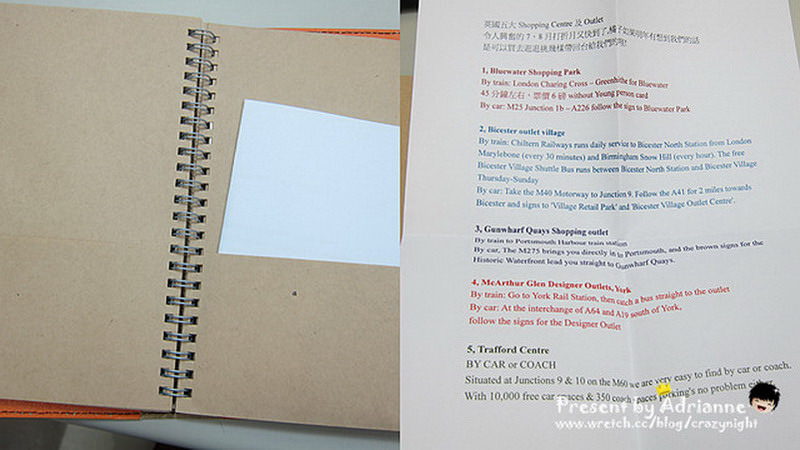 英國五大 Shopping Centre 及 Outlet
令人興奮的 7、8 月打折月又快到了,橘子如果明年有想到我們的話
是可以買去逛逛挑幾樣帶回台給我們的啦!
1, Bluewater Shopping Park
By train: London Charing Cross – Greenhithe for Bluewater
45 分鐘左右，票價 6 磅 without Young person card
By car: M25 Junction 1b – A226 follow the sign to Bluewater Park
2, Bicester outlet village
By train: Chiltern Railways runs daily service to Bicester North Station from London
Marylebone (every 30 minutes) and Birmingham Snow Hill (every hour). The free
Bicester Village Shuttle Bus runs between Bicester North Station and Bicester Village
Thursday-Sunday
By car: Take the M40 Motorway to Junction 9. Follow the A41 for 2 miles towards
Bicester and signs to 'Village Retail Park' and 'Bicester Village Outlet Centre'.
3, Gunwharf Quays Shopping outlet
By train to Portsmouth Harbour train station
By car, The M275 brings you directly in to Portsmouth, and the brown signs for the
Historic Waterfront lead you straight to Gunwharf Quays.
4, McArthur Glen Designer Outlets, York
By train: Go to York Rail Station, then catch a bus straight to the outlet
By car: At the interchange of A64 and A19 south of York,
follow the signs for the Designer Outlet
5, Trafford Centre
BY CAR or COACH
Situated at Junctions 9 & 10 on the M60 we are very easy to find by car or coach.
With 10,000 free car spaces & 350 coach spaces parking's no problem
Present by Adrianne
www.wretch.cc/blog/crazynight